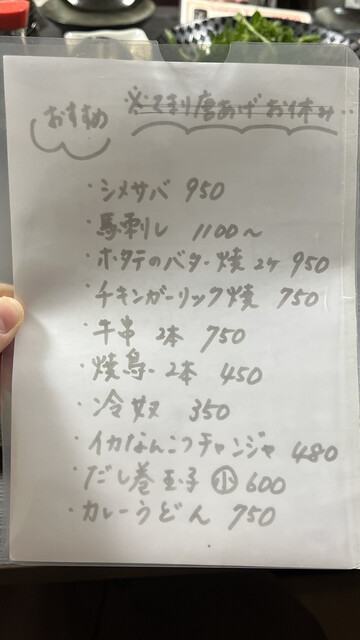 おすすめ
※てまり唐あげお休み..
・シメサバ 950
・馬刺し 1100〜
・ホタテのバター焼 2ケ 950
・チキンガーリック焼 750
・牛串 2本 750
・焼鳥 2本 450
・冷奴 350
・イカなんこつチャンジャ 480
・だし巻玉子 ㊛ 600
・カレーうどん 750